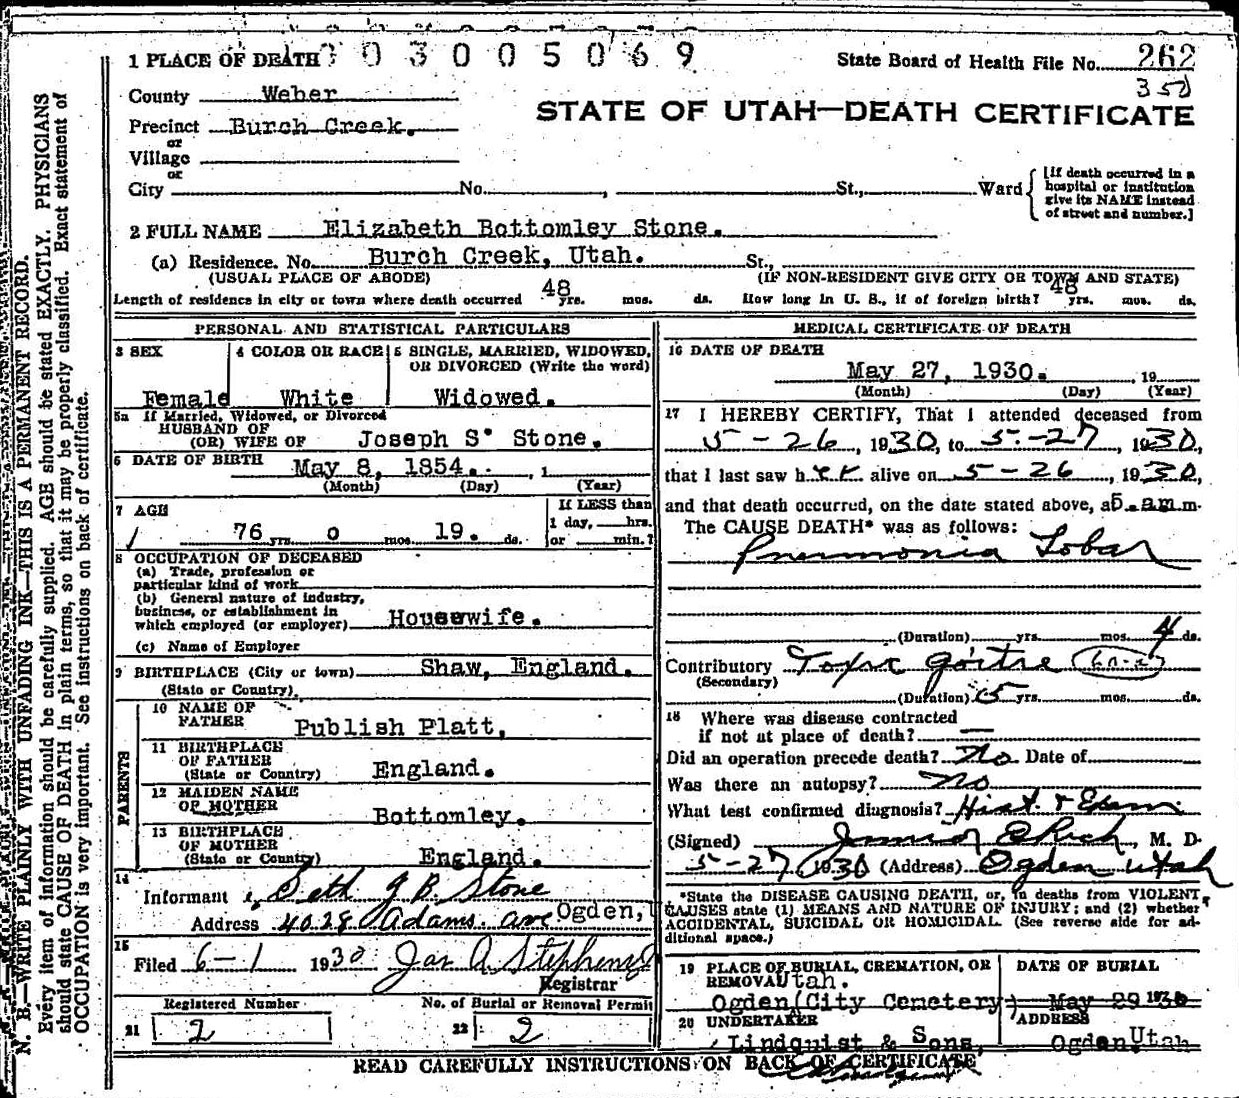 1 PLACE OF DEATH 03005069 State Board of Health File No. 262
350
County Weber
STATE OF UTAH—DEATH CERTIFICATE
Precinct Burch Creek.
or
Village
or
City No. , St., Ward [If death occurred in a hospital or institution give its NAME instead of street and number.]
2 FULL NAME Elizabeth Bottomley Stone.
(a) Residence. No. Burch Creek, Utah. St.,
(USUAL PLACE OF ABODE) (IF NON-RESIDENT GIVE CITY OR TOWN AND STATE)
Length of residence in city or town where death occurred 48 yrs. mos. ds. How long in U. S., if of foreign birth? 48 yrs. mos. ds.
PERSONAL AND STATISTICAL PARTICULARS
3 SEX 4 COLOR OR RACE 5 SINGLE, MARRIED, WIDOWED, OR DIVORCED (Write the word)
Female White Widowed.
5a If Married, Widowed, or Divorced
HUSBAND OF
(OR) WIFE OF Joseph S. Stone.
6 DATE OF BIRTH May 8, 1854. , 1
(Month) (Day) (Year)
7 AGE If LESS than
1 day, hrs.
76 yrs. 0 mos. 19. ds. or min.?
8 OCCUPATION OF DECEASED
(a) Trade, profession or
particular kind of work
(b) General nature of industry,
business, or establishment in
which employed (or employer) Housewife.
(c) Name of Employer
9 BIRTHPLACE (City or town) Shaw, England.
(State or Country)
PARENTS
10 NAME OF
FATHER Publish Platt,
11 BIRTHPLACE
OF FATHER
(State or Country) England.
12 MAIDEN NAME
OF MOTHER Bottomley.
13 BIRTHPLACE
OF MOTHER
(State or Country) England.
14
Informant Seth J B. Stone
Address 4028 Adams. ave Ogden, U
15
Filed 6-1 1930 Jas A. Stephens
Registrar
Registered Number No. of Burial or Removal Permit
21 2 22 2
MEDICAL CERTIFICATE OF DEATH
16 DATE OF DEATH
May 27, 1930. , 19
(Month) (Day) (Year)
17 I HEREBY CERTIFY, That I attended deceased from
5-26, 1930, to 5-27, 1930,
that I last saw her alive on 5-26, 1930,
and that death occurred, on the date stated above, at 5.am.m.
The CAUSE DEATH* was as follows:
Pneumonia Lobar
(Duration) yrs. mos. 4 ds.
Contributory Toxic goitre
(Secondary)
(Duration) 5 yrs. mos. ds.
18 Where was disease contracted
if not at place of death? —
Did an operation precede death? No. Date of
Was there an autopsy? no
What test confirmed diagnosis? Hist. & Exam
(Signed) Junior E Rich, M. D.
5-27 1930 (Address) Ogden Utah
*State the DISEASE CAUSING DEATH, or, in deaths from VIOLENT
CAUSES state (1) MEANS AND NATURE OF INJURY; and (2) whether
ACCIDENTAL, SUICIDAL OR HOMICIDAL. (See reverse side for ad-
ditional space.)
19 PLACE OF BURIAL, CREMATION, OR DATE OF BURIAL
REMOVAL Utah.
Ogden (City Cemetery) May 29 1930
20 UNDERTAKER ADDRESS
Lindquist & Sons, Ogden, Utah
READ CAREFULLY INSTRUCTIONS ON BACK OF CERTIFICATE
N. B.—WRITE PLAINLY WITH UNFADING INK—THIS IS A PERMANENT RECORD.
Every item of information should be carefully supplied. AGE should be stated EXACTLY. PHYSICIANS
should state CAUSE OF DEATH in plain terms, so that it may be properly classified. Exact statement of
OCCUPATION is very important. See instructions on back of certificate.